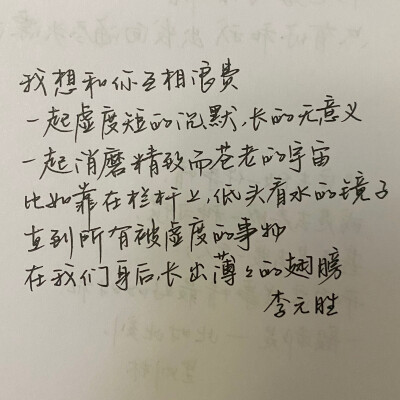 我想和你互相浪费
一起虚度短的沉默,长的无意义
一起消磨精致而苍老的宇宙
比如靠在栏杆上,低头看水的镜子
直到所有被虚度的事物
在我们身后,长出薄々的翅膀
李元胜